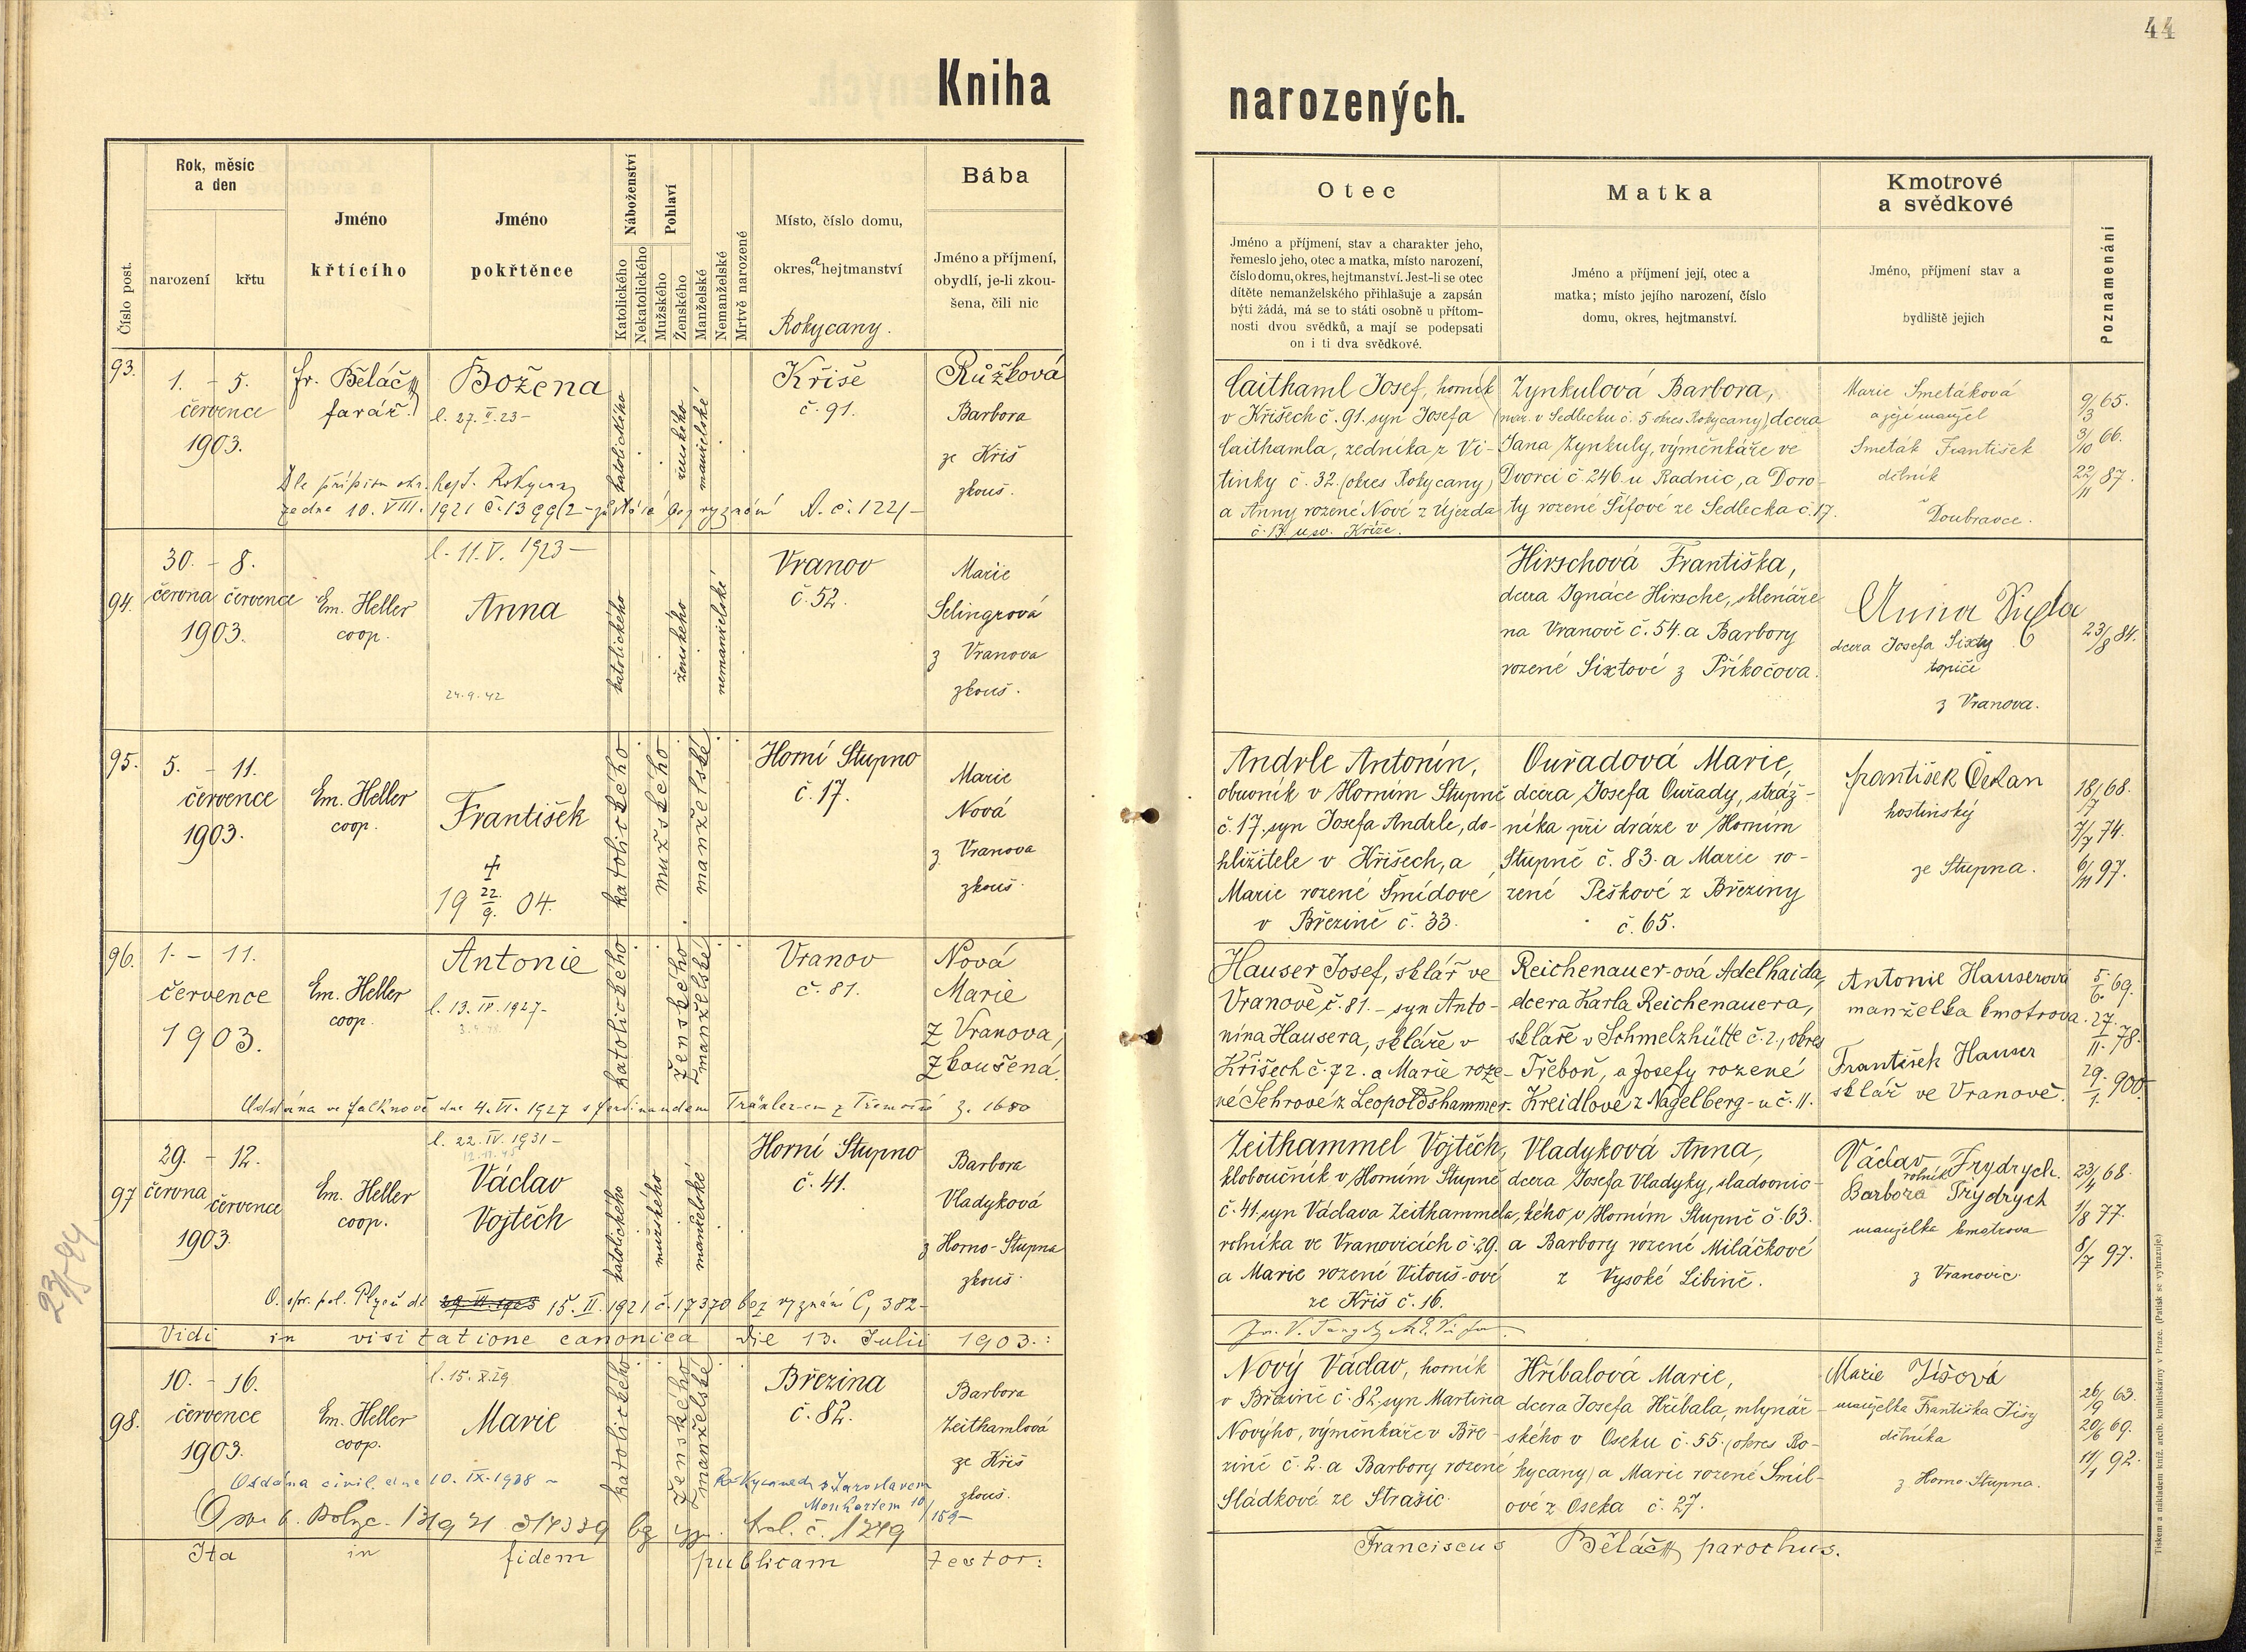 44
Kniha narozených.
Číslo post.
Rok, měsíc
a den
narození
křtu
Jméno
křtícího
Jméno
pokřtěnce
Náboženství
Katolického
Nekatolického
Pohlaví
Mužského
Ženského
Manželské
Nemanželské
Mrtvě narozené
Místo, číslo domu,
okres, a hejtmanství
Rokycany.
Bába
Jméno a příjmení,
obydlí, je-li zkou-
šena, čili nic
Otec
Jméno a příjmení, stav a charakter jeho,
řemeslo jeho, otec a matka, místo narození,
číslo domu, okres, hejtmanství. Jest-li se otec
dítěte nemanželského přihlašuje a zapsán
býti žádá, má se to státi osobně u přítom-
nosti dvou svědků, a mají se podepsati
on i ti dva svědkové.
Matka
Jméno a příjmení její, otec a
matka; místo jejího narození, číslo
domu, okres, hejtmanství.
Kmotrové
a svědkové
Jméno, příjmení stav a
bydliště jejich
Poznamenání
93.
1. - 5.
července
1903.
fr. Běláčk
farář.
Božena
l. 27. II. 23-
katolického
ženského
manželské
Křiše
č. 91.
Růžková
Barbora
ze Kříš
zkouš.
Dle přípisu okr. hejt. Rokycany
ze dne 10. VIII. 1921 č. 13992 - zůstává bez vyznání N. č. 1221-
Caithaml Josef, horník
v Křišech č. 91. syn Josefa
Caithamla, zedníka z Vi-
tinky č. 32. (okres Rokycany)
a Anny rozené Nové z Újezda
č. 13. u sv. Kříže.
Zynkulová Barbora,
(nar. v Sedlecku č. 5 okres Rokycany) dcera
Jana Zynkuly, výměnkáře ve
Dvorci č. 246. u Radnic, a Doro-
ty rozené Šífové ze Sedlecka č. 17.
Marie Smetáková
a její manžel
Smeták František
dělník
Doubravce.
9/3 65.
3/10 66.
22/11 87.
94.
30. - 8.
června července
1903.
Em. Heller
coop.
l. 11. V. 1923-
Anna
24.9.42
katolického
ženského
nemanželské
Vranov
č. 52.
Marie
Selingrová
z Vranova
zkouš.
Hirschová Františka,
dcera Ignáce Hirsche, sklenáře
na Vranově č. 54. a Barbory
rozené Sixtové z Příkočova.
Anna
dcera Josefa Sixty
topiče
z Vranova.
23/8 84.
95.
5. - 11.
července
1903.
Em. Heller
coop.
František
✝
19 22./9. 04.
katolického
mužského
manželské
Horní Stupno
č. 17.
Marie
Nová
z Vranova
zkouš.
Andrle Antonín,
obuvník v Horním Stupně
č. 17. syn Josefa Andrle, do-
hližitele v Křišech, a
Marie rozené Šmídove
v Březině č. 33.
Ouřadová Marie,
dcera Josefa Ouřady, stráž-
níka při dráze v Horním
Stupně č. 83. a Marie ro-
zené Peškové z Březiny
č. 65.
František Čekan
hostinský
ze Stupna.
18/7 68.
7/7 74.
6/11 97.
96.
1. - 11.
července
1903.
Em. Heller
coop.
Antonie
l. 13. IV. 1927-
katolického
ženského
manželské
Vranov
č. 81.
Nová
Marie
z Vranova,
zkoušená.
Oddána ve Falknově dne 4. VI. 1927 s Ferdinandem Tränlerem z Třemošné z. 1680
Hauser Josef, sklář ve
Vranově č. 81. - syn Anto-
nína Hausera, skláře v
Křišech č. 72. a Marie roze-
né Sehrové z Leopoldshammer.
Reichenauer-ová Adelhaida,
dcera Karla Reichenauera,
skláře v Schmelzhütte č. 2., okres
Třeboň, a Josefy rozené
Kreidlové z Nagelberg-u č. 11.
Antonie Hauserová
manželka kmotrova.
František Hauser
sklář ve Vranově.
5./6. 69.
27./11. 78.
29./1. 900.
97
29. - 12.
června července
1903.
Em. Heller
coop.
l. 22. IV. 1931-
Václav
Vojtěch
katolického
mužského
manželské
Horní Stupno
č. 41.
Barbora
Vladyková
z Horno-Stupna
zkouš.
O. spr. pol. Plzeň dt 15. II. 1921 č. 17370 bez vyznání C, 382-
23/5-94
Zeithammel Vojtěch,
kloboučník v Horním Stupně
č. 41. syn Václava Zeithammela,
rolníka ve Vranovicích č. 29.
a Marie rozené Vitouš-ové
ze Kříš č. 16.
Vladyková Anna,
dcera Josefa Vladyky, sladovnic-
kého v Horním Stupně č. 63.
a Barbory rozené Miláčkové
z Vysoké Libině.
Václav Frydrych.
rolník
Barbora Frydrych
manželka kmotrova
z Vranovic.
23/4 68.
1/8 77.
8/7 97.
Vidi in visitatione canonica die 13. Julii 1903.:
98.
10. - 16.
července
1903.
Em. Heller
coop.
l. 15. X. 29
Marie
katolického
ženského
manželské
Březina
č. 82.
Barbora
Zeithamlová
ze Kříš
zkouš.
Oddána civil. dne 10. IX. 1938 - Rokycanech s Jaroslavem
Monhartem
Nový Václav, horník
v Březině č. 82, syn Martina
Nového, výměnkáře v Bře-
zině č. 2. a Barbory rozené
Sládkové ze Strašic.
Hříbalová Marie,
dcera Josefa Hříbala, mlynář-
ského v Oseku č. 55. (okres Ro-
kycany) a Marie rozené Šmíl-
ové z Oseka č. 27.
Marie Jíšová
manželka Františka Jíšy
dělníka
z Horno-Stupna.
26/9 63.
20/6 69.
11/1 92.
Ita in fidem publicam testor:
Franciscus Běláčk parochus.
Tiskem a nákladem kníž. arcib. knihtiskárny v Praze. (Patisk se vyhrazuje.)